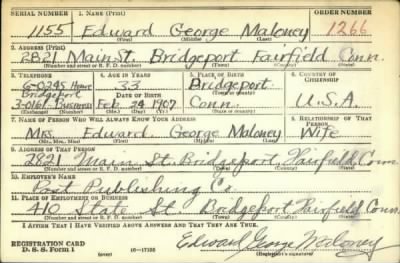 SERIAL NUMBER 1. NAME (Print) ORDER NUMBER
1155 Edward George Maloney 1266
(First) (Middle) (Last)
2. ADDRESS (Print)
2821 Main St. Bridgeport Fairfield Conn.
(Number and street or R. F. D. number) (Town) (County) (State)
3. TELEPHONE 4. AGE IN YEARS 5. PLACE OF BIRTH 6. COUNTRY OF CITIZENSHIP
6-0245 Home 33 Bridgeport
Bridgeport DATE OF BIRTH (Town or county)
3-0161-Business Feb 24 1907 Conn. U.S.A.
(Exchange) (Number) (Mo.) (Day) (Yr.) (State or country)
7. NAME OF PERSON WHO WILL ALWAYS KNOW YOUR ADDRESS 8. RELATIONSHIP OF THAT PERSON
Mrs. Edward George Maloney Wife
(Mr., Mrs., Miss) (First) (Middle) (Last)
9. ADDRESS OF THAT PERSON
2821 Main St. Bridgeport, Fairfield, Conn
(Number and street or R. F. D. number) (Town) (County) (State)
10. EMPLOYER'S NAME
Post Publishing Co.
11. PLACE OF EMPLOYMENT OR BUSINESS
410 State St. Bridgeport Fairfield Conn.
(Number and street or R. F. D. number) (Town) (County) (State)
I AFFIRM THAT I HAVE VERIFIED ABOVE ANSWERS AND THAT THEY ARE TRUE.
REGISTRATION CARD Edward George Maloney
D. S. S. Form 1 (over) 16—17105 (Registrant's signature)